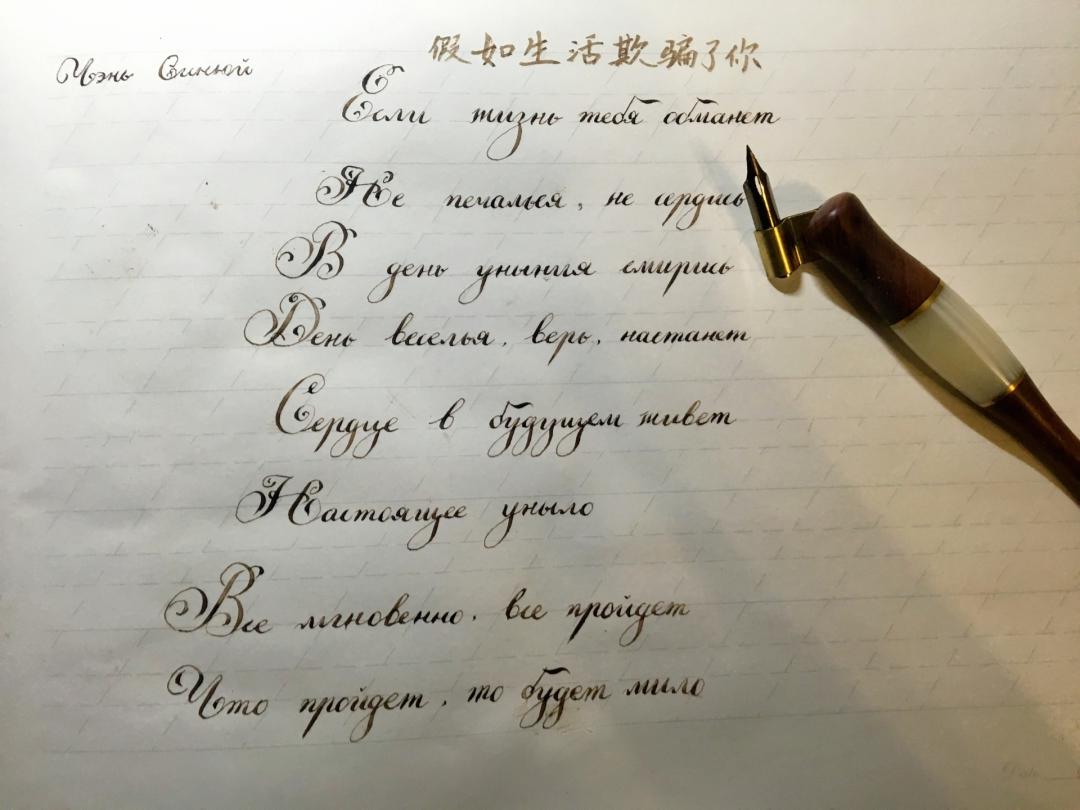 假如生活欺骗了你
Чэнь Синюй
Если жизнь тебя обманет
Не печалься, не сердись
В день уныния смирись
День веселья, верь, настанет
Сердце в будущем живет
Настоящее уныло
Все мгновенно, все пройдет
Что пройдет, то будет мило
Date